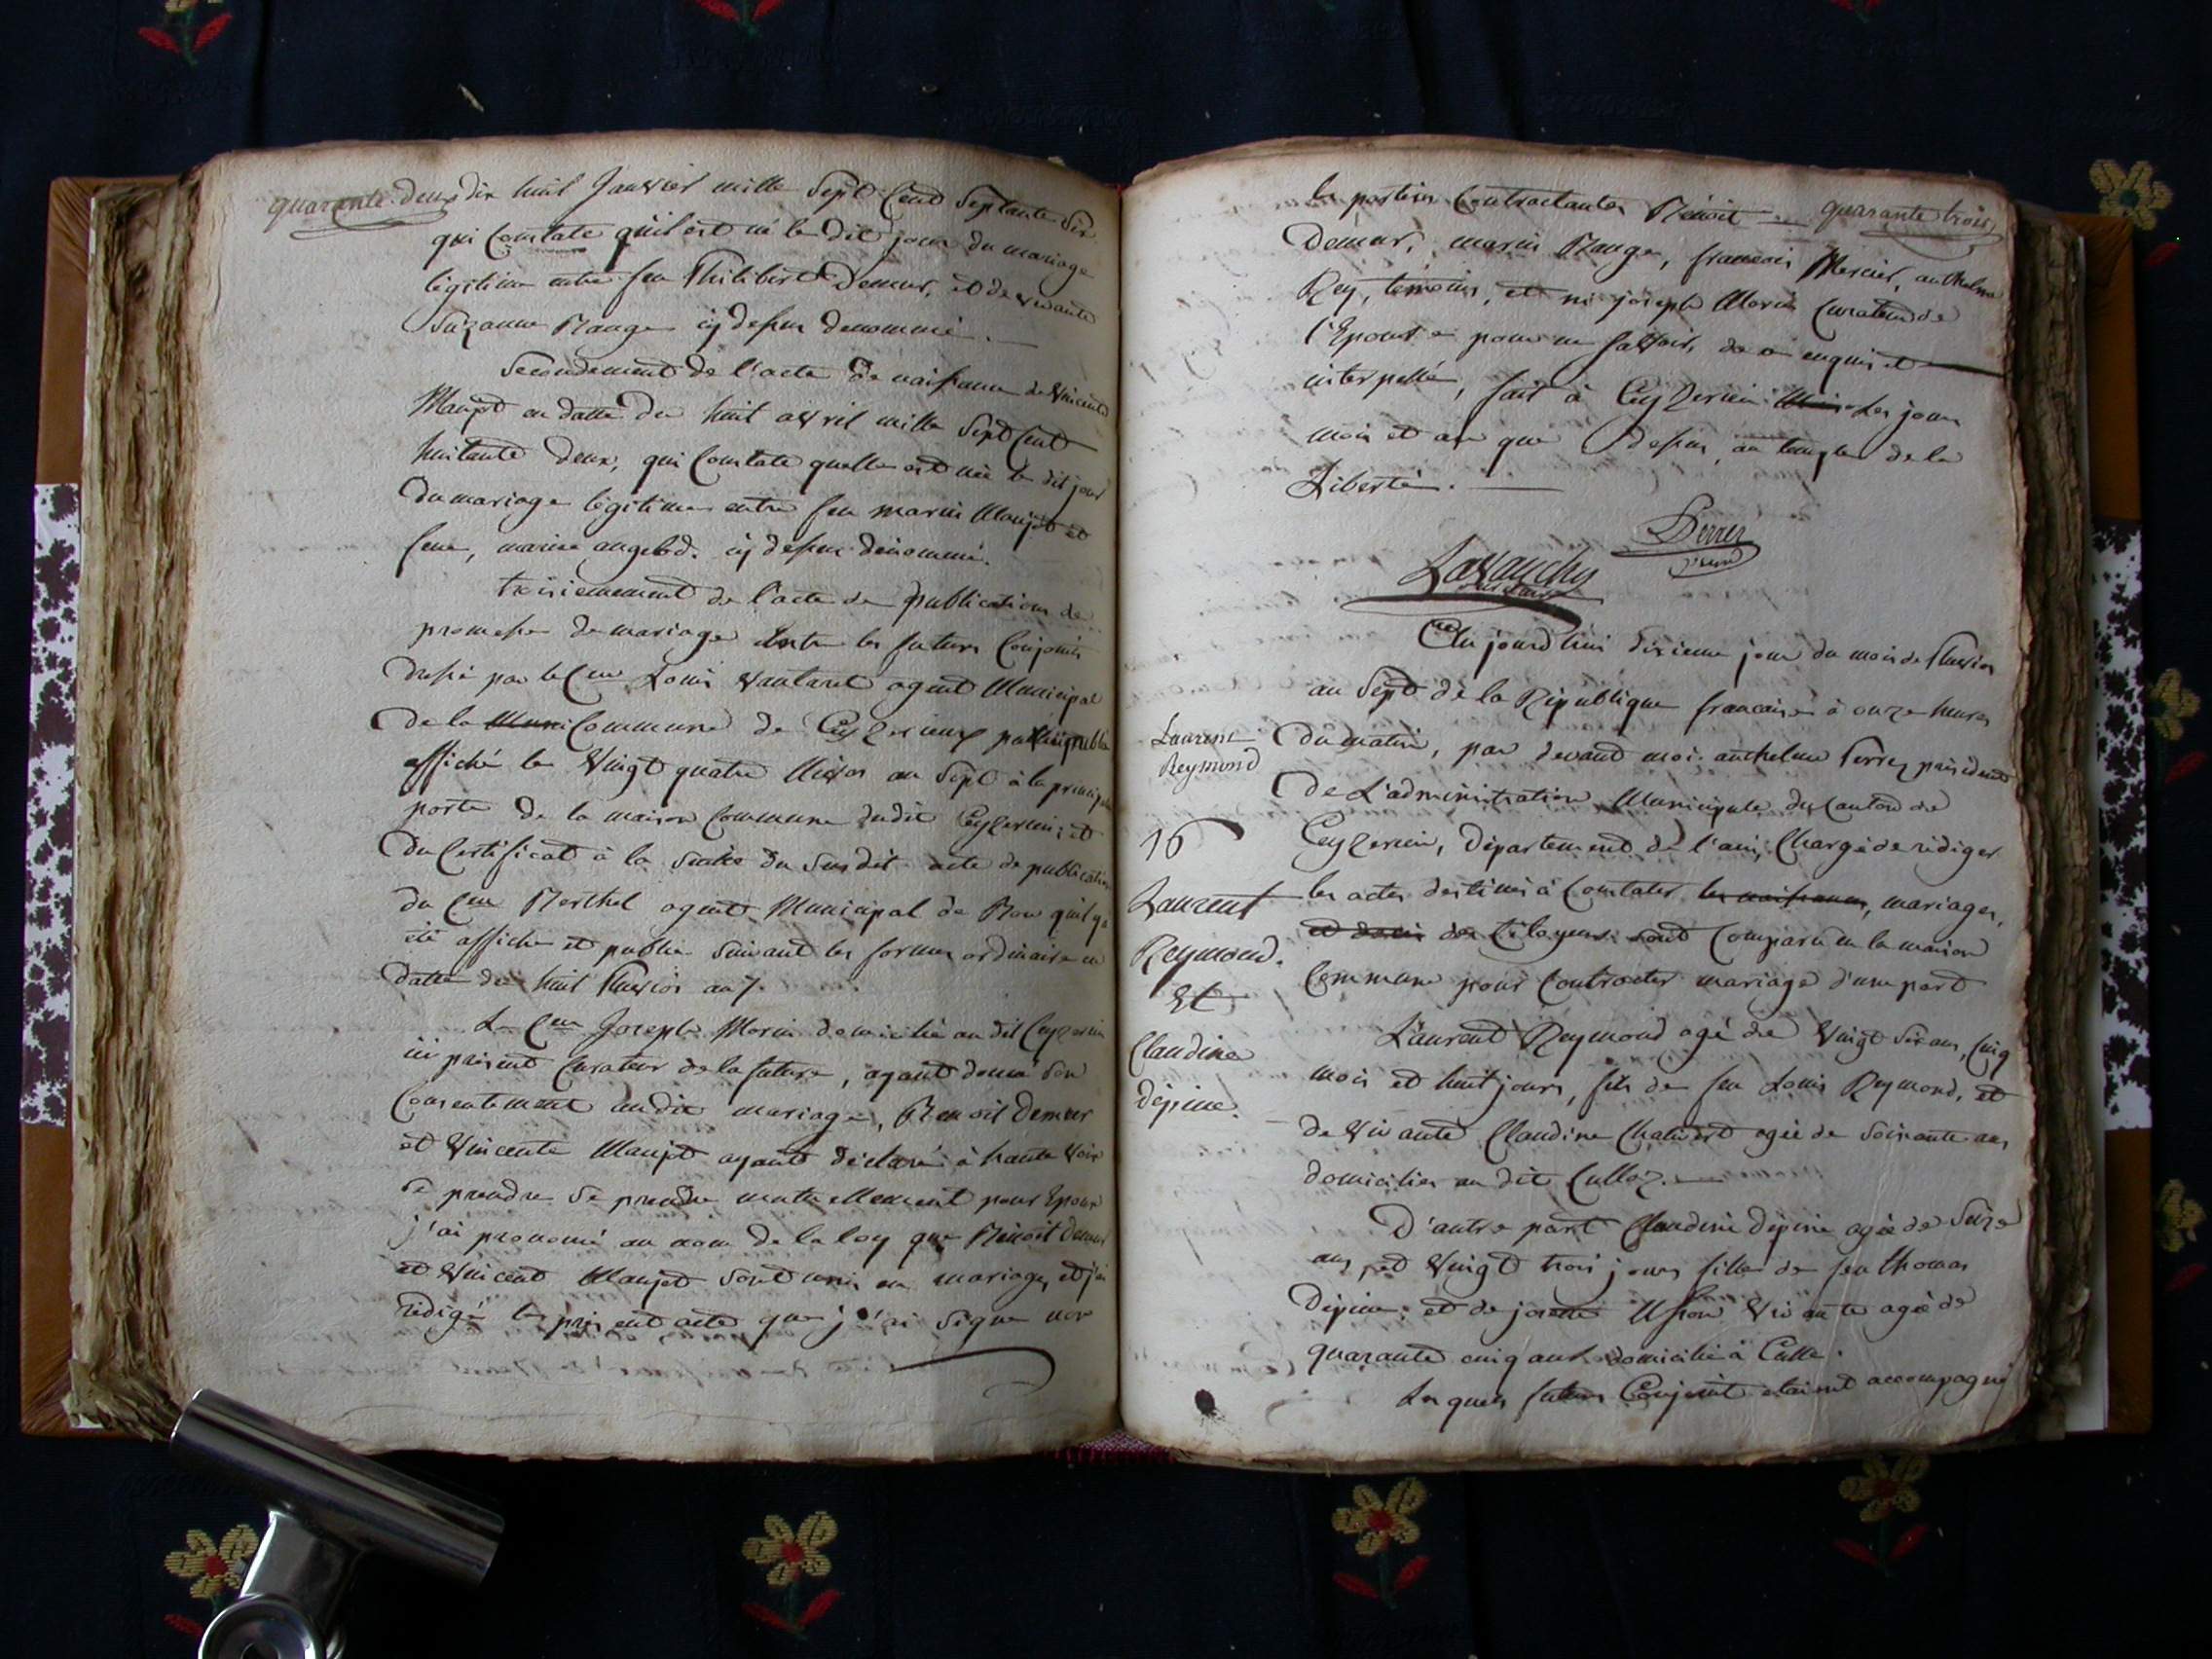 quarante deux dix huit Janvier mille Sept Cent Septante Six
qui Constate qu'il est né le dit jour du mariage
légitime entre feu Philibert Demeur, et de vivante
Suzanne Rauge cy dessus denommé.
Secondement de l'acte de naissance de Vincente
Maupt en datte du huit avril mille Sept Cent
huitante deux, qui Constate quelle est née le dit jour
du mariage légitime entre feu marin Maupt et
feue, marie cy dessus dénommé.
troisiemement de l'acte de publication de
promesse de mariage entre les futurs Conjoints
dressé par le Cen Louis Vautaret agent Municipal
de la Muni Commune de Ceyzerieux publié
affiché le Vingt quatre Nivos an Sept à la principale
porte de la maison Commune dudit Ceyzerieu; et
du Certificat à la Suitte du Susdit acte de publication
du Cen Berthet agent Municipal de qu'il y a
été affiché et publié Suivant les formes ordinaire en
datte du huit Pluvios an 7.
Le Cen Joseph Morin domicilié au dit Ceyzerieu
ici présent Curateur de la future, ayant donné son
Consentement au dit mariage, Benoit Demeur
et Vincente Maupt ayant déclaré à haute Voix
Se prendre Se prendre mutuellement pour Epoux
j'ai prononcé au nom de la loy que Bénoit Demeur
et Vincent Maupt Sont unis en mariage, et j'ai
rédigé le présent acte que j'ai Signé non
les parties Contractantes Bénoit quarante trois
Demeur, marin Rauge, francois Mercier, anthelme
Rey, témoins, et ni joseph Morin Curateur de
l'Epouse pour ne Savoir, de ce enquis et
interpellé, fait à Ceyzerieu les jour
mois et an que dessus, au temple de la
Liberté.
Perrez
présid
Lavanchy
secretaire
Au jourd'hui dixieme jour du mois de Pluvios
an Sept de la République francaise à onze heures
Laurent
Reymond
du matin, par devant moi anthelme Perrez président
de L'administration Municipale du Canton de
16
Ceyzerieu, Département de l'ain, Chargé de rédiger
Laurent
les actes destinés à Constater les naissances, mariages,
Reymond.
et deces des Citoyens sont Comparu en la maison
Et
Commune pour Contracter mariage d'une part
Claudine
dépine.
Laurent Reymond agé de Vingt Six ans, Cinq
mois et huit jours, fils de feu Louis Reymond, et
de Vivante Claudine agée de Soixante ans
domiciliés au dit Culloz.
D'autre part Claudine Dépine agée de Seize
ans, et Vingt trois jours fille de feu thomas
Dépine; et de josette Vivante agée de
quarante cinq ans domicilié à Culle.
Lesquels futurs Conjoint etaient accompagné